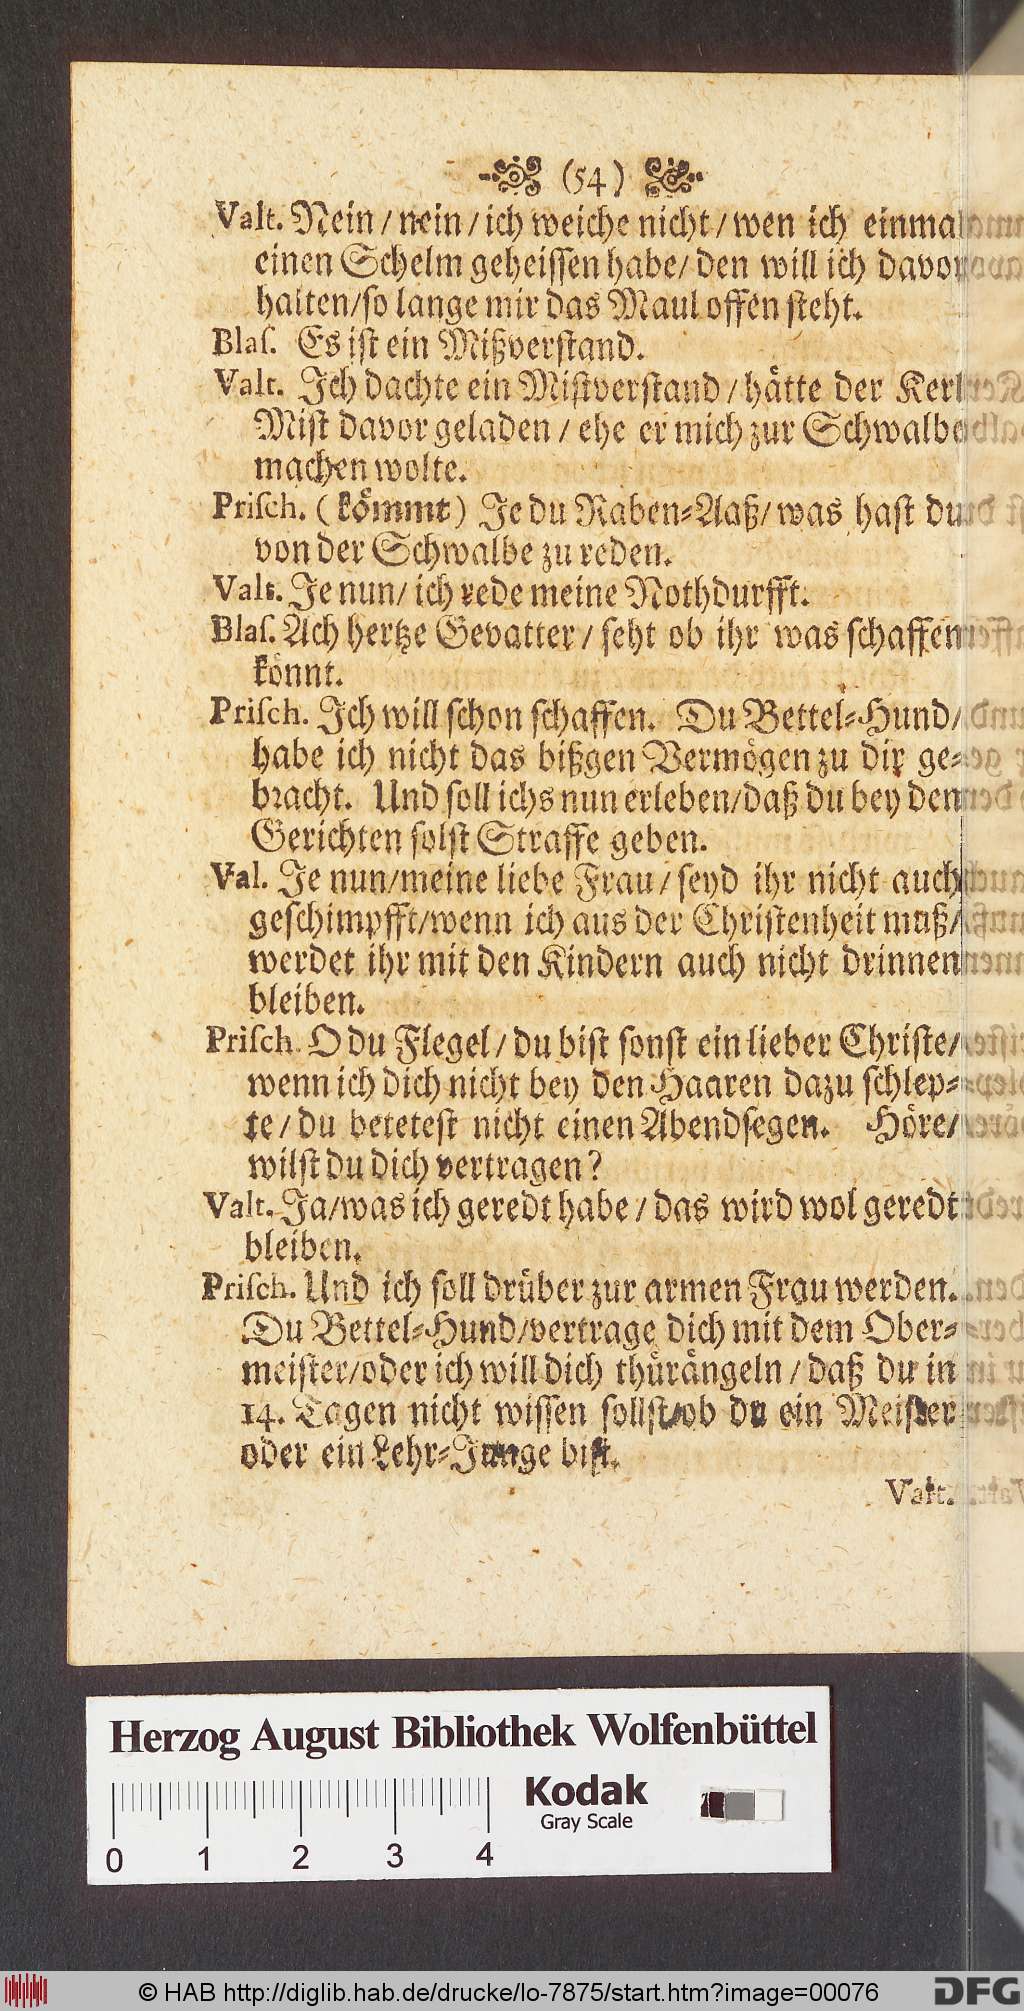 (54)
Valt. Nein / nein / ich weiche nicht / wen ich einmal
einen Schelm geheissen habe / den will ich davor
halten / so lange mir das Maul offen steht.
Blas. Es ist ein Mißverstand.
Valt. Ich dachte ein Mistverstand / hätte der Kerl
Mist davor geladen / ehe er mich zur Schwalbe
machen wolte.
Prisch. (kömmt) Je du Raben-Aaß / was hast du
von der Schwalbe zu reden.
Valt. Je nun / ich rede meine Nothdurfft.
Blas. Ach hertze Gevatter / seht ob ihr was schaffen
könnt.
Prisch. Ich will schon schaffen. Du Bettel-Hund /
habe ich nicht das bißgen Vermögen zu dir ge-
bracht. Und soll ichs nun erleben / daß du bey den
Gerichten solst Straffe geben.
Val. Je nun / meine liebe Frau / seyd ihr nicht auch
geschimpfft / wenn ich aus der Christenheit muß /
werdet ihr mit den Kindern auch nicht drinnen
bleiben.
Prisch. O du Flegel / du bist sonst ein lieber Christe /
wenn ich dich nicht bey den Haaren dazu schlep-
te / du betetest nicht einen Abendsegen. Höre /
wilst du dich vertragen?
Valt. Ja / was ich geredt habe / das wird wol geredt
bleiben.
Prisch. Und ich soll drüber zur armen Frau werden.
Du Bettel-Hund / vertrage dich mit dem Ober-
meister / oder ich will dich thürängeln / daß du in
14. Tagen nicht wissen sollst / ob du ein Meister
oder ein Lehr-Junge bist.
Valt.
Herzog August Bibliothek Wolfenbüttel
Kodak
Gray Scale
0 1 2 3 4
© HAB http://diglib.hab.de/drucke/lo-7875/start.htm?image=00076
DFG